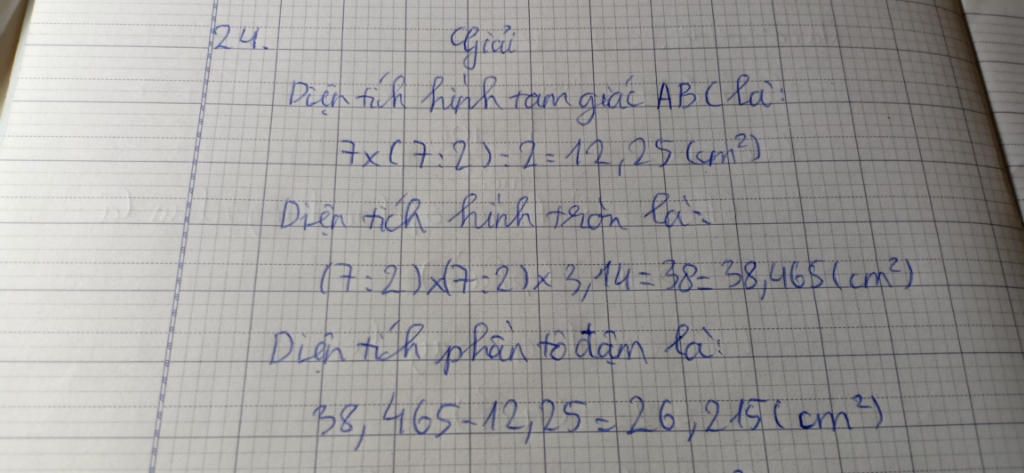 24. Giải
Diện tích hình tam giác ABC là:
7x(7:2):2=12,25(cm²)
Diện tích hình tròn là:
(7:2)x(7:2)x3,14=38=38,465(cm²)
Diện tích phần tô đậm là:
38,465-12,25=26,215(cm²)